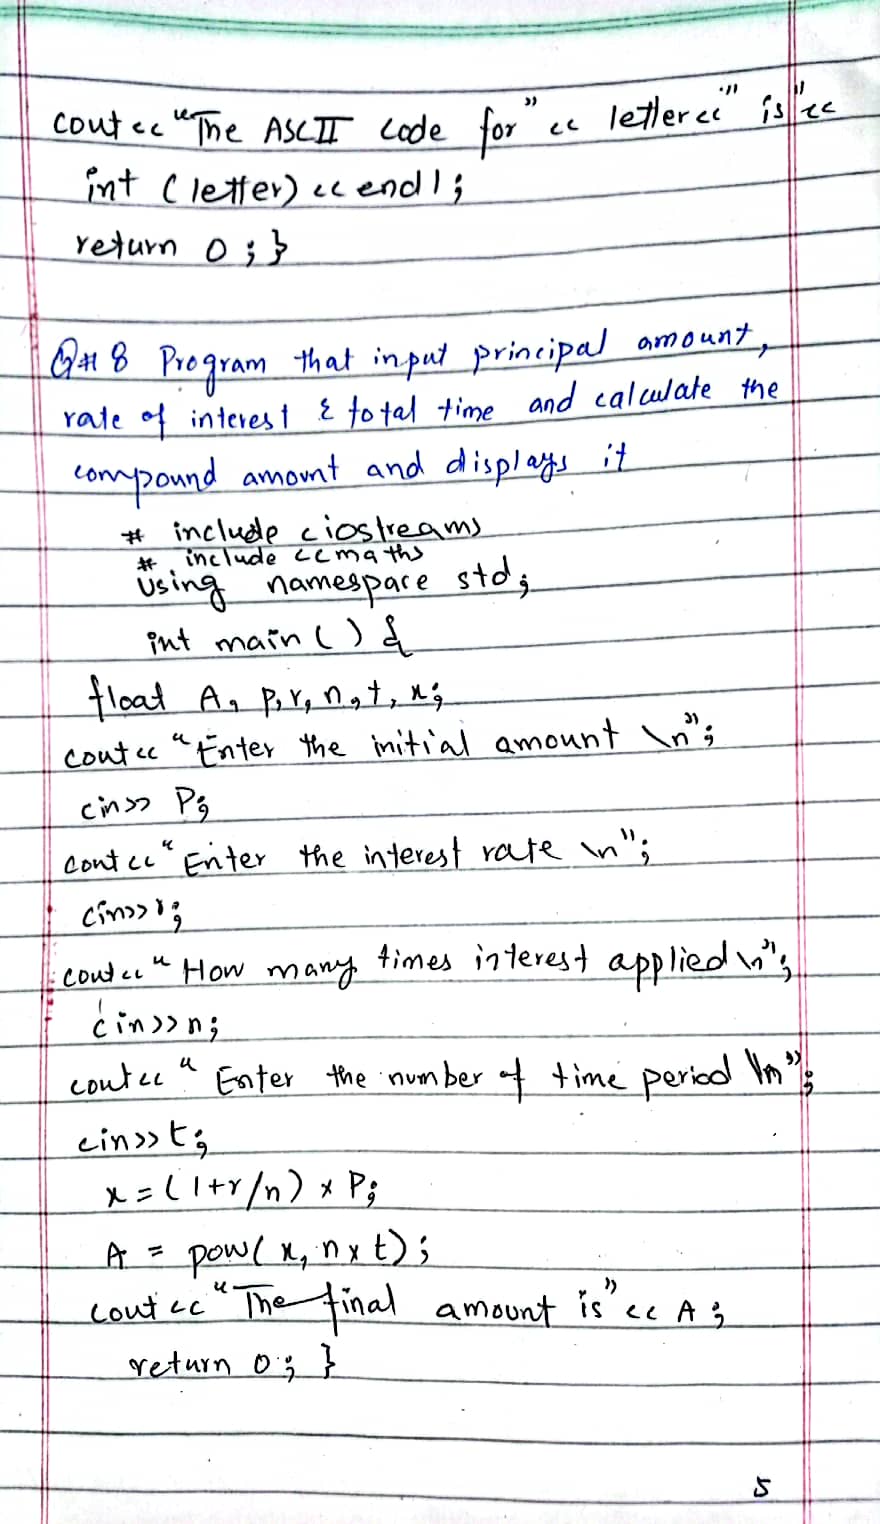 cout << "The ASCII code for" << letter << " is" <<
int (letter) << endl;
return 0;}
Q#8 Program that input principal amount,
rate of interest & total time and calculate the
compound amount and displays it
# include <iostream>
# include <cmath>
Using namespace std;
int main() {
float A, P, r, n, t, x;
cout << "Enter the initial amount \n";
cin>> P;
cout << "Enter the interest rate \n";
cin>> r;
cout << "How many times interest applied \n";
cin>>n;
cout << "Enter the number of time period \n";
cin>> t;
x = (1+r/n) x P;
A = pow( x, n x t);
cout << "The final amount is" << A;
return 0; }
5